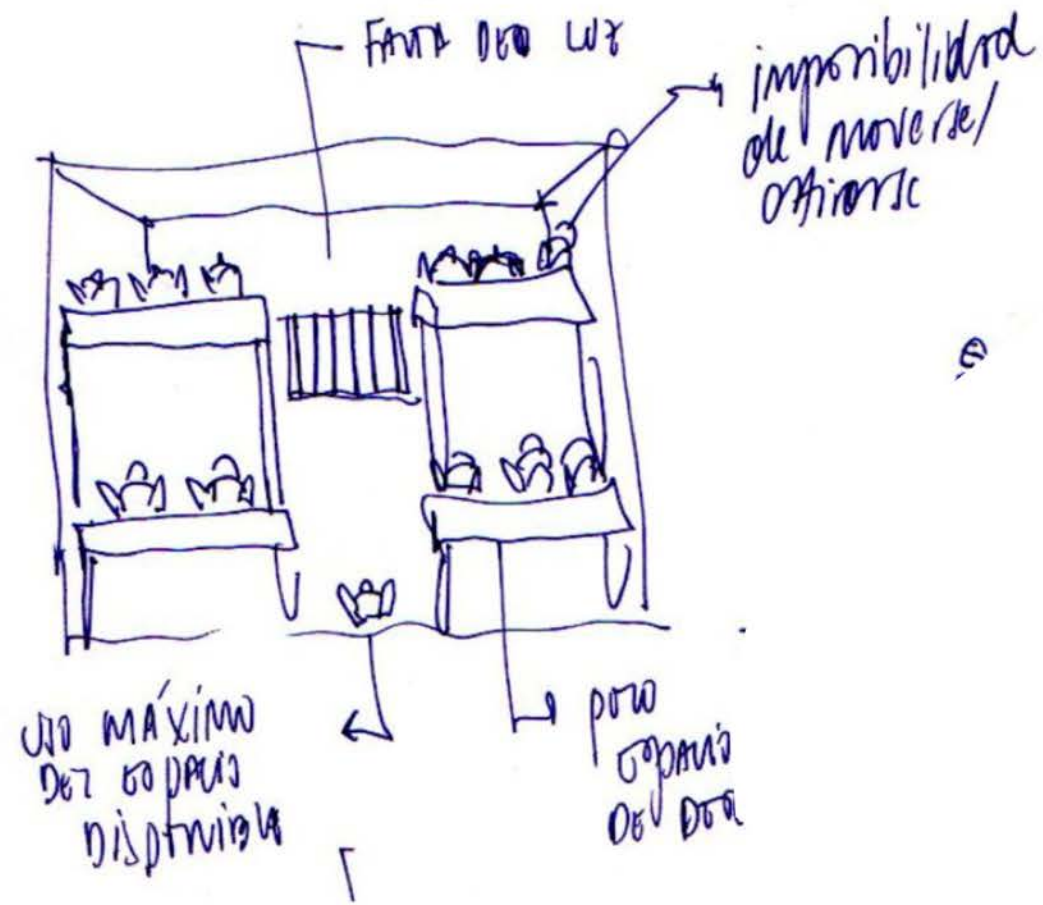 FALTA DE LUZ
imposibilidad
de moverse/
estirarse
USO MÁXIMO
DEL ESPACIO
DISPONIBLE
POCO
ESPACIO
DE